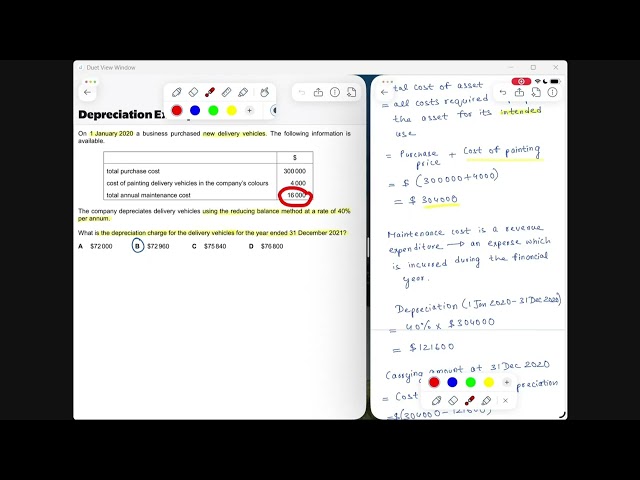 Duet View Window
Depreciation Ex
On 1 January 2020 a business purchased new delivery vehicles. The following information is
available.
$
total purchase cost 300 000
cost of painting delivery vehicles in the company's colours 4 000
total annual maintenance cost 16 000
The company depreciates delivery vehicles using the reducing balance method at a rate of 40%
per annum.
What is the depreciation charge for the delivery vehicles for the year ended 31 December 2021?
A $72 000 B $72 960 C $75 840 D $76 800
tal cost of asset
= all costs required
the asset for its intended
use
= Purchase price + Cost of painting
= $ (300000+4000)
= $ 304000
Maintenance cost is a revenue
expenditure → an expense which
is incurred during the financial
year.
Depreciation (1 Jan 2020-31 Dec 2020)
= 40% x $304000
= $121600
Carrying amount at 31 Dec 2020
= Cost preciation
= $(304000-121600)